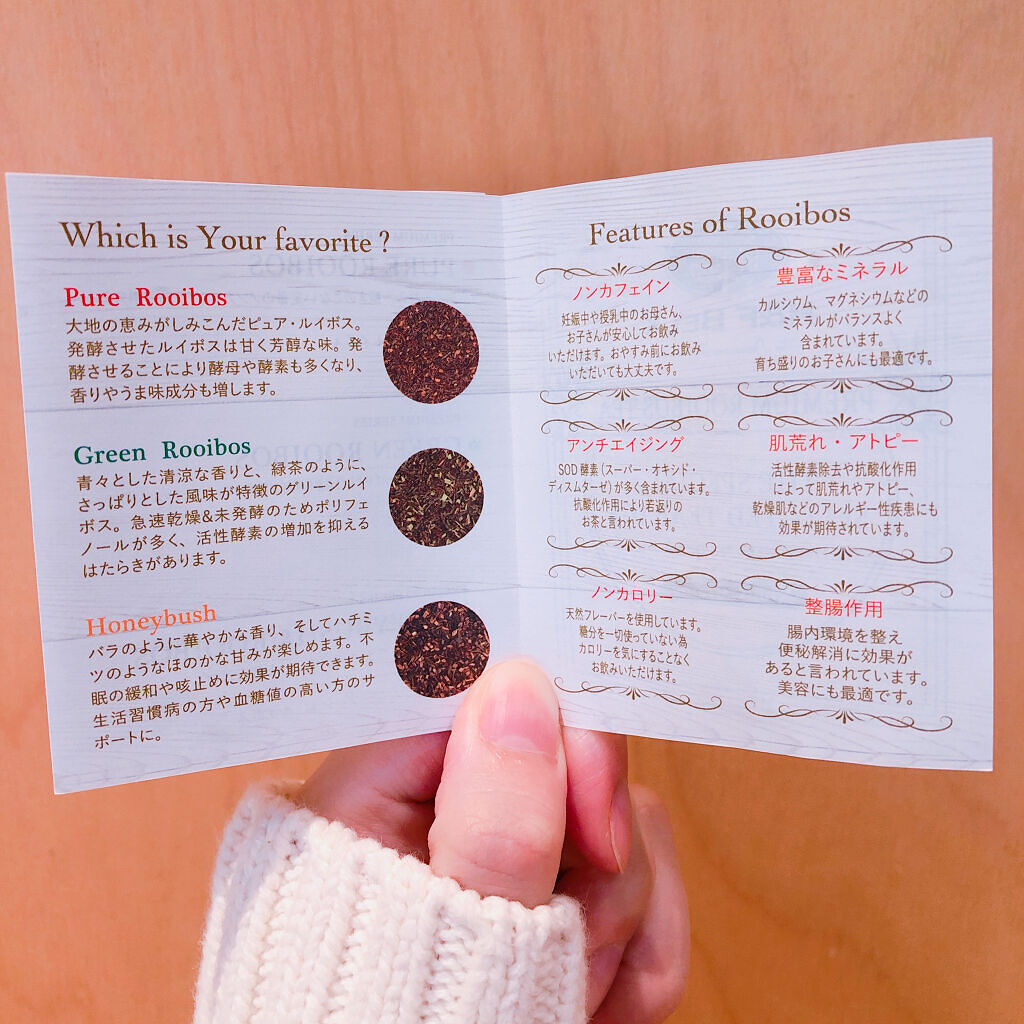 Which is Your favorite ?
Pure Rooibos
大地の恵みがしみこんだピュア・ルイボス。
発酵させたルイボスは甘く芳醇な味。発
酵させることにより酵母や酵素も多くなり、
香りやうま味成分も増します。
Green Rooibos
青々とした清涼な香りと、緑茶のように、
さっぱりとした風味が特徴のグリーンルイ
ボス。急速乾燥&未発酵のためポリフェ
ノールが多く、活性酵素の増加を抑える
はたらきがあります。
Honeybush
バラのように華やかな香り、そしてハチミ
ツのようなほのかな甘みが楽しめます。不
眠の緩和や咳止めに効果が期待できます。
生活習慣病の方や血糖値の高い方のサ
ポートに。
Features of Rooibos
ノンカフェイン
妊娠中や授乳中のお母さん、
お子さんが安心してお飲み
いただけます。おやすみ前にお飲み
いただいても大丈夫です。
豊富なミネラル
カルシウム、マグネシウムなどの
ミネラルがバランスよく
含まれています。
育ち盛りのお子さんにも最適です。
アンチエイジング
SOD 酵素（スーパー・オキシド・
ディスムターゼ）が多く含まれています。
抗酸化作用により若返りの
お茶と言われています。
肌荒れ・アトピー
活性酵素除去や抗酸化作用
によって肌荒れやアトピー、
乾燥肌などのアレルギー性疾患にも
効果が期待されています。
ノンカロリー
天然フレーバーを使用しています。
糖分を一切使っていない為
カロリーを気にすることなく
お飲みいただけます。
整腸作用
腸内環境を整え
便秘解消に効果が
あると言われています。
美容にも最適です。